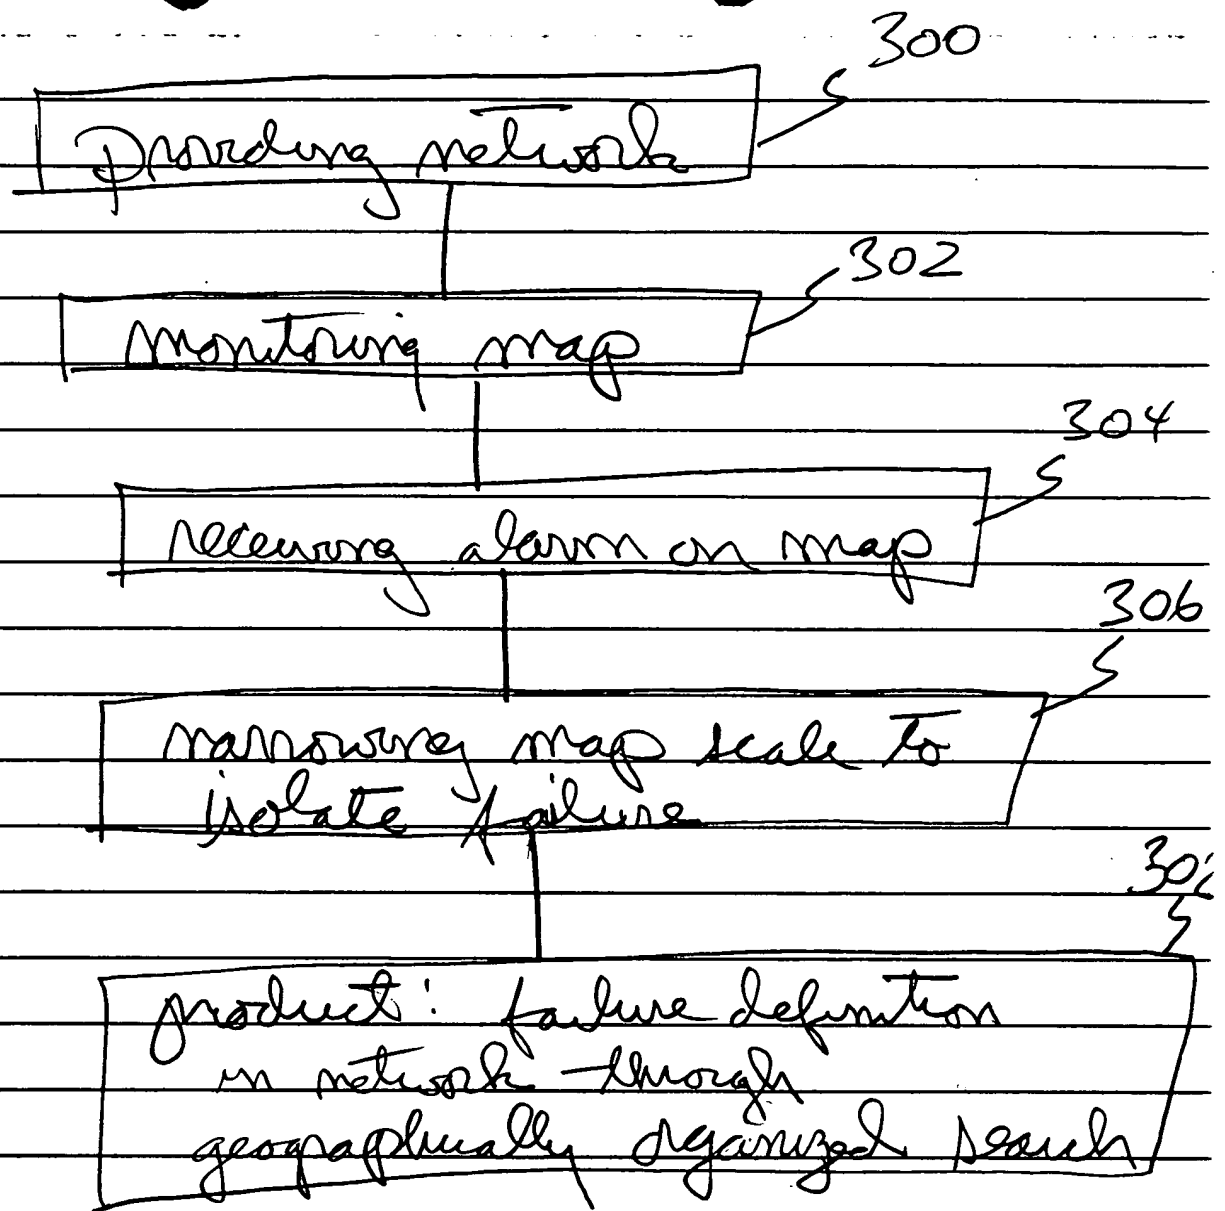 300
providing network
302
monitoring map
304
receiving alarm on map
306
narrowing map scale to
isolate failure
product: failure definition
in network through
geographically organized search